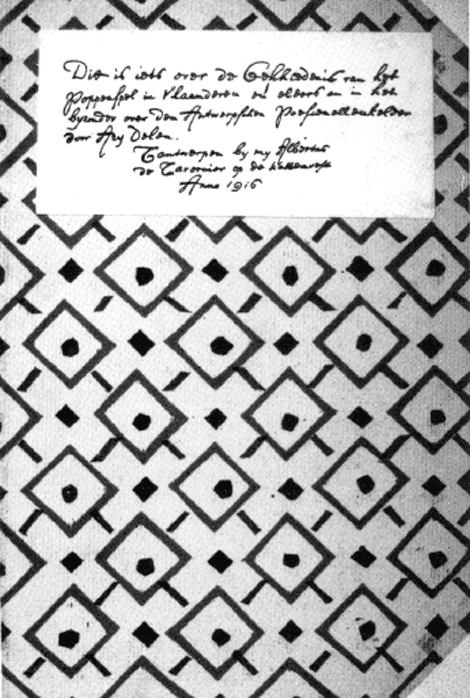 Dit is iets over de Geschiedenis van het
Poppenspel in Vlaanderen en elders en in het
byzonder over den Antwerpschen Poesjenellenkelder
door Ary Delen.
Tantwerpen by my Albertus
de Tavernier op de
Anno 1916